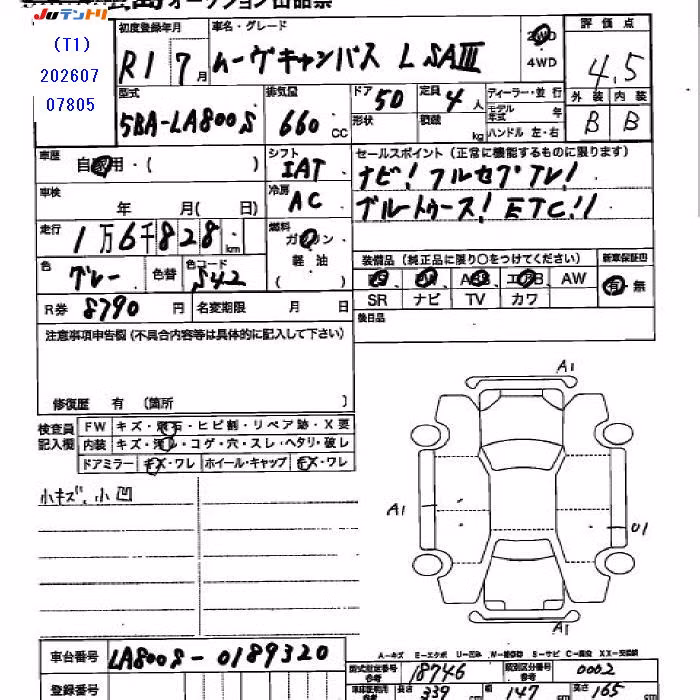 オークション出品票
JUテントリ
(T1)
202607
07805
初度登録年月 R1 7月
車名・グレード ムーヴキャンバス L SAⅢ
2WD
4WD
評価点 4.5
型式 5BA-LA800S
排気量 660 CC
ドア 5D
形状
定員 4 人
積載 kg
ディーラー・並行
モデル年式 年
ハンドル 左・右
外装 内装
B B
車歴 自家用・( )
シフト IAT
冷房 AC
セールスポイント (正常に機能するものに限ります)
ナビ! フルセグTV!
ブルートゥース! ETC!!
車検 年 月( 日)
走行 1万6千828km
燃料 ガソリン・軽油
( )
色 グレー
色替
色コード S42
装備品 (純正品に限り○をつけてください)
PS PW ABS エアB AW
SR ナビ TV カワ
新車保証書
有・無
R券 8790 円
名変期限 月 日
後日品
注意事項申告欄 (不具合内容等は具体的に記入して下さい)
修復歴 有 (箇所 )
検査員記入欄
FW キズ・飛石・ヒビ割・リペア跡・X要
内装 キズ・汚れ・コゲ・穴・スレ・ヘタリ・破レ
ドアミラー キズ・ワレ ホイール・キャップ キズ・ワレ
小キズ、小凹
A1
A1
U1
A1
A-キズ E-エクボ U-凹み W-補修跡 S-サビ C-腐蝕 XX-交換済
車台番号 LA800S-0189320
型式指定番号 18746 類別区分番号 0002
登録番号
長さ 339 cm 幅 147 cm 高さ 165 cm